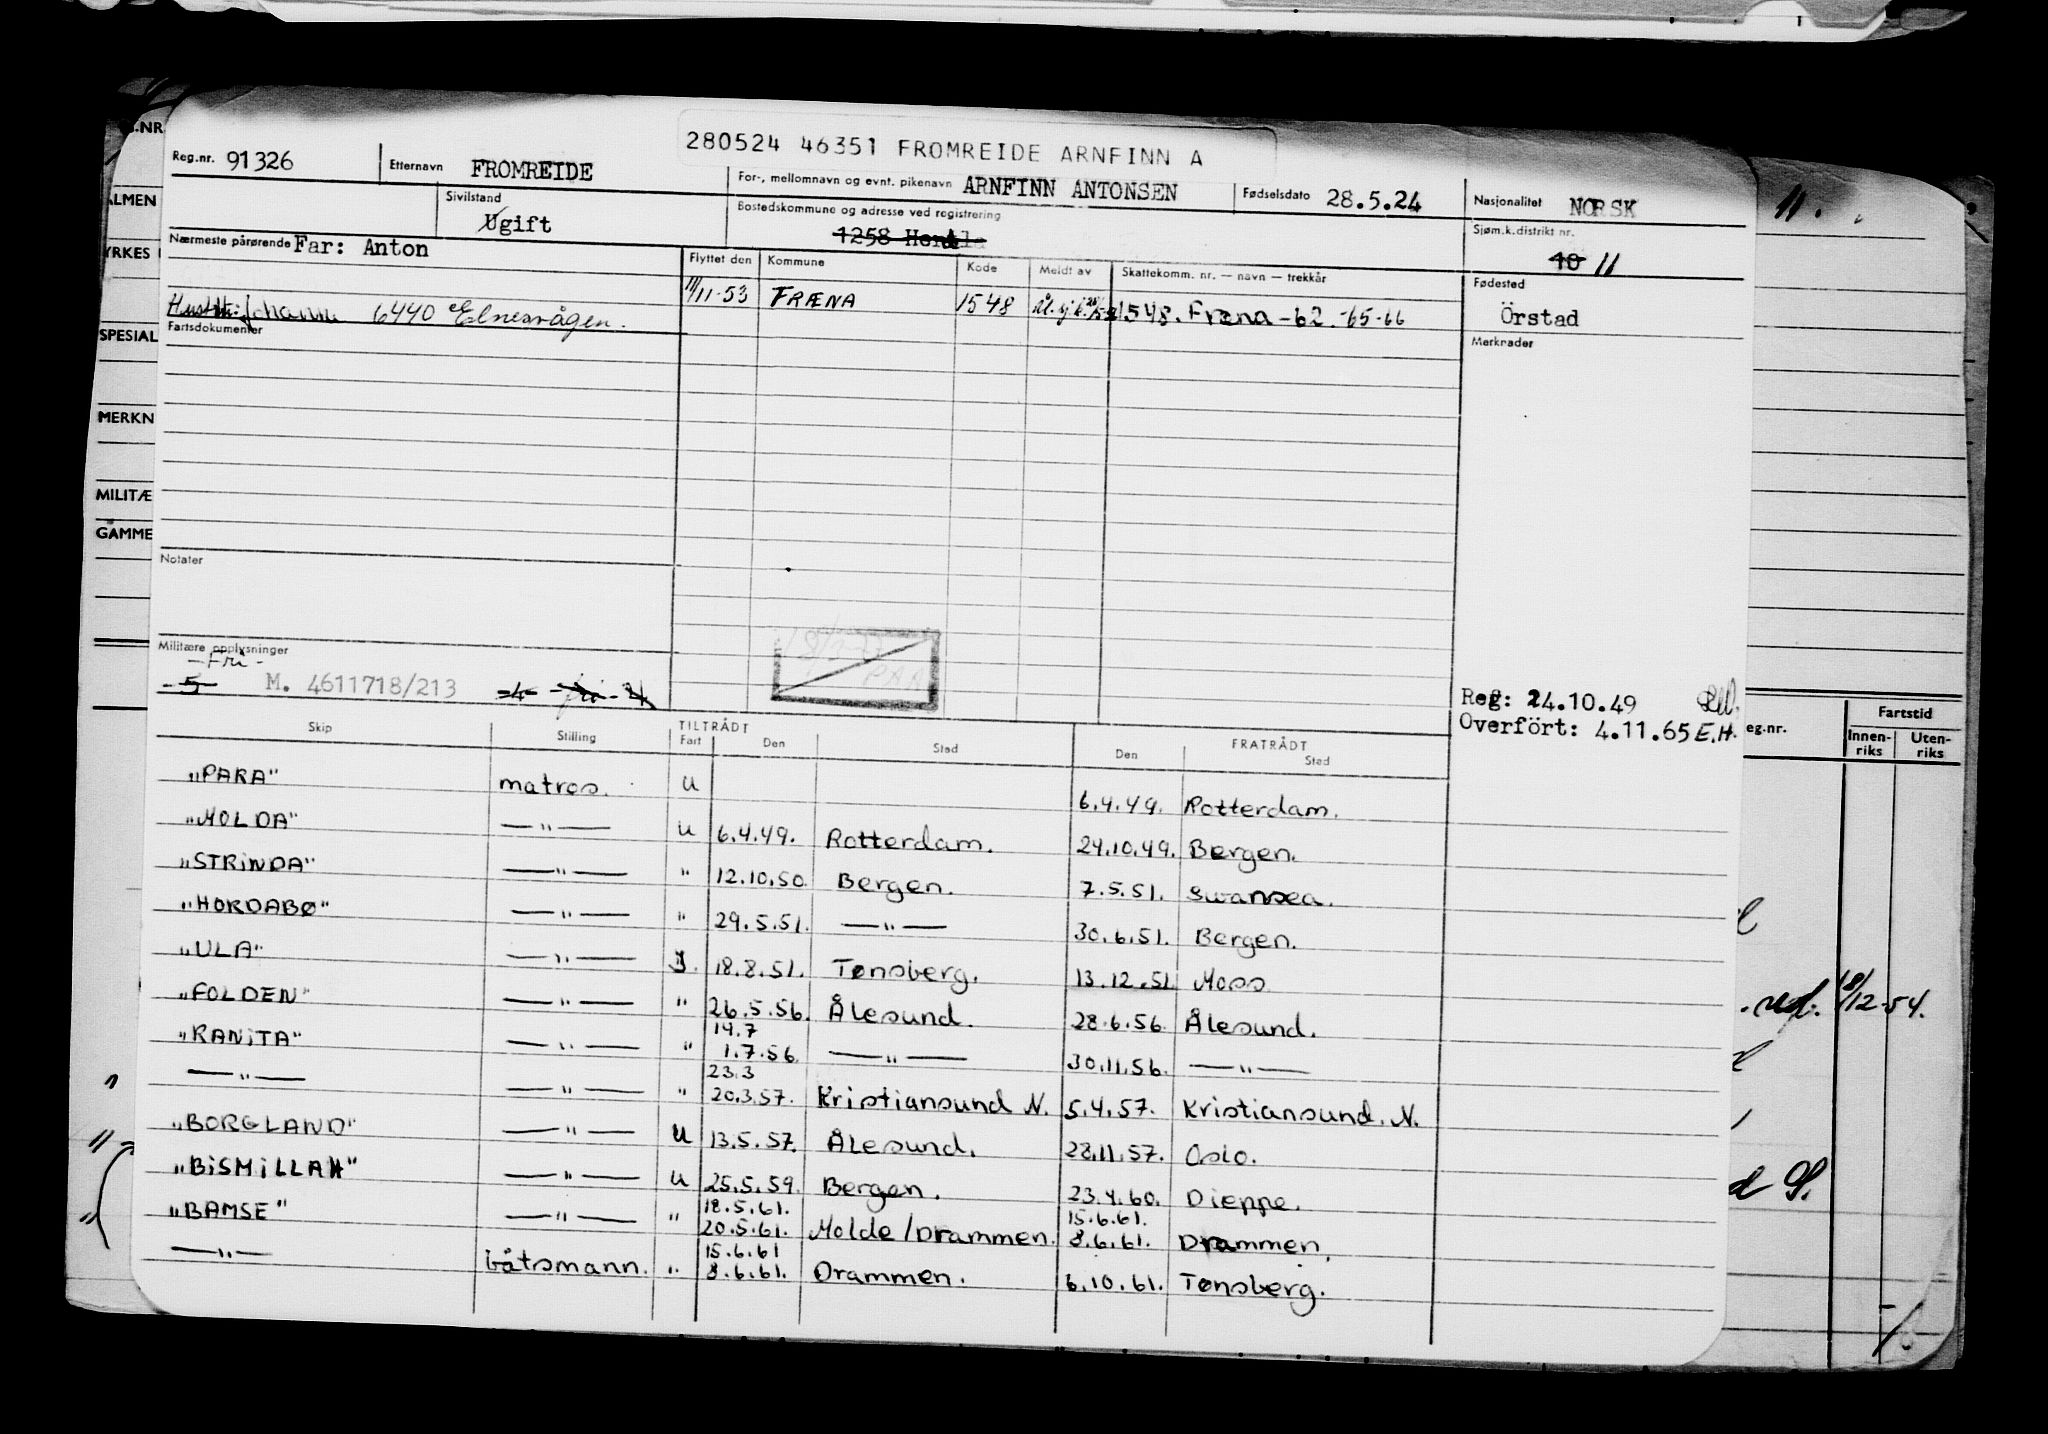 280524 46351 FROMREIDE ARNFINN A
Reg.nr. 91326 Etternavn FROMREIDE For-, mellomnavn og evnt. pikenavn ARNFINN ANTONSEN Fødselsdato 28.5.24 Nasjonalitet NORSK
Sivilstand Ugift Bostedskommune og adresse ved registrering 1258 Herdla Sjøm.k.distrikt nr. 10 11
Nærmeste pårørende Far: Anton Flyttet den Kommune Kode Meldt av Skattekomm. nr. — navn — trekkår Fødested
Hustru: Johanne 6440 Elnesvågen. 11/11-53 FRÆNA 1548 1548. Fræna -62. -65-66 Örstad
Fartsdokumenter Merknader
Notater
Militære opplysninger
-Fri-
-5- M. 4611718/213 -4- -fri- 4
Reg: 24.10.49
Overfört: 4.11.65 E.H.
Skip Stilling TILTRÅDT Fart Den Sted FRATRÅDT Den Sted
"PARA" matros. U 6.4.49. Rotterdam.
"MOLDA" —"— U 6.4.49. Rotterdam. 24.10.49. Bergen.
"STRINDA" —"— " 12.10.50. Bergen. 7.5.51. Swansea.
"HORDABØ" —"— " 29.5.51. —"— 30.6.51. Bergen.
"ULA" —"— I. 18.8.51. Tønsberg. 13.12.51. Moss
"FOLDEN" —"— " 26.5.56. Ålesund. 28.6.56. Ålesund.
14.7
"RANITA" —"— " 1.7.56. —"— 30.11.56. —"—
23.3
—"— —"— " 20.3.57. Kristiansund N. 5.4.57. Kristiansund. N.
"BORGLAND" —"— U 13.5.57. Ålesund. 28.11.57. Oslo.
"BISMILLAH" —"— U 25.5.59. Bergen. 23.4.60. Dieppe.
18.5.61. 15.6.61.
"BAMSE" —"— " 20.5.61. Molde/Drammen. 8.6.61. Drammen.
15.6.61
—"— båtsmann. " 8.6.61. Drammen. 6.10.61. Tønsberg.
G.NR
ALMEN
YRKES
SPESIAL
MERKN
MILITÆ
GAMME
11.
eg.nr. Fartstid
Innen-riks Uten-riks
18/12-54.